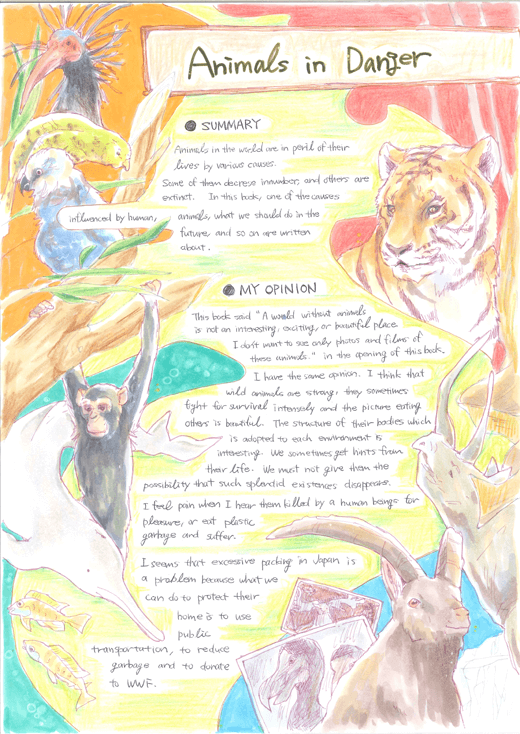 Animals in Danger
SUMMARY
Animals in the world are in peril of their
lives by various causes.
Some of them decrese innumber, and others are
extinct. In this book, one of the causes
influenced by human, animals, what we should do in the
future, and so on are written
about.
MY OPINION
This book said "A world without animals
is not an interesting, exciting, or beautiful place.
I don't want to see only photos and films of
these animals." in the opening of this book.
I have the same opinion. I think that
wild animals are strong, they sometimes
fight for survival intensely and the picure eating
others is beautiful. The structure of their bodies which
is adopted to each environment is
interesting. We sometimes get hints from
their life. We must not give them the
possibility that such splendid existences disappears.
I feel pain when I hear them killed by a human beings for
pleasure, or eat plastic
garbage and suffer.
I seems that excessive packing in Japan is
a problem because what we
can do to protect their
home is to use
public
transportation, to reduce
garbage and to donate
to WWF.